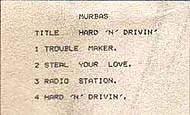 MURBAS
TITLE HARD 'N' DRIVIN'
1 TROUBLE MAKER.
2 STEAL YOUR LOVE.
3 RADIO STATION.
4 HARD 'N' DRIVIN'.